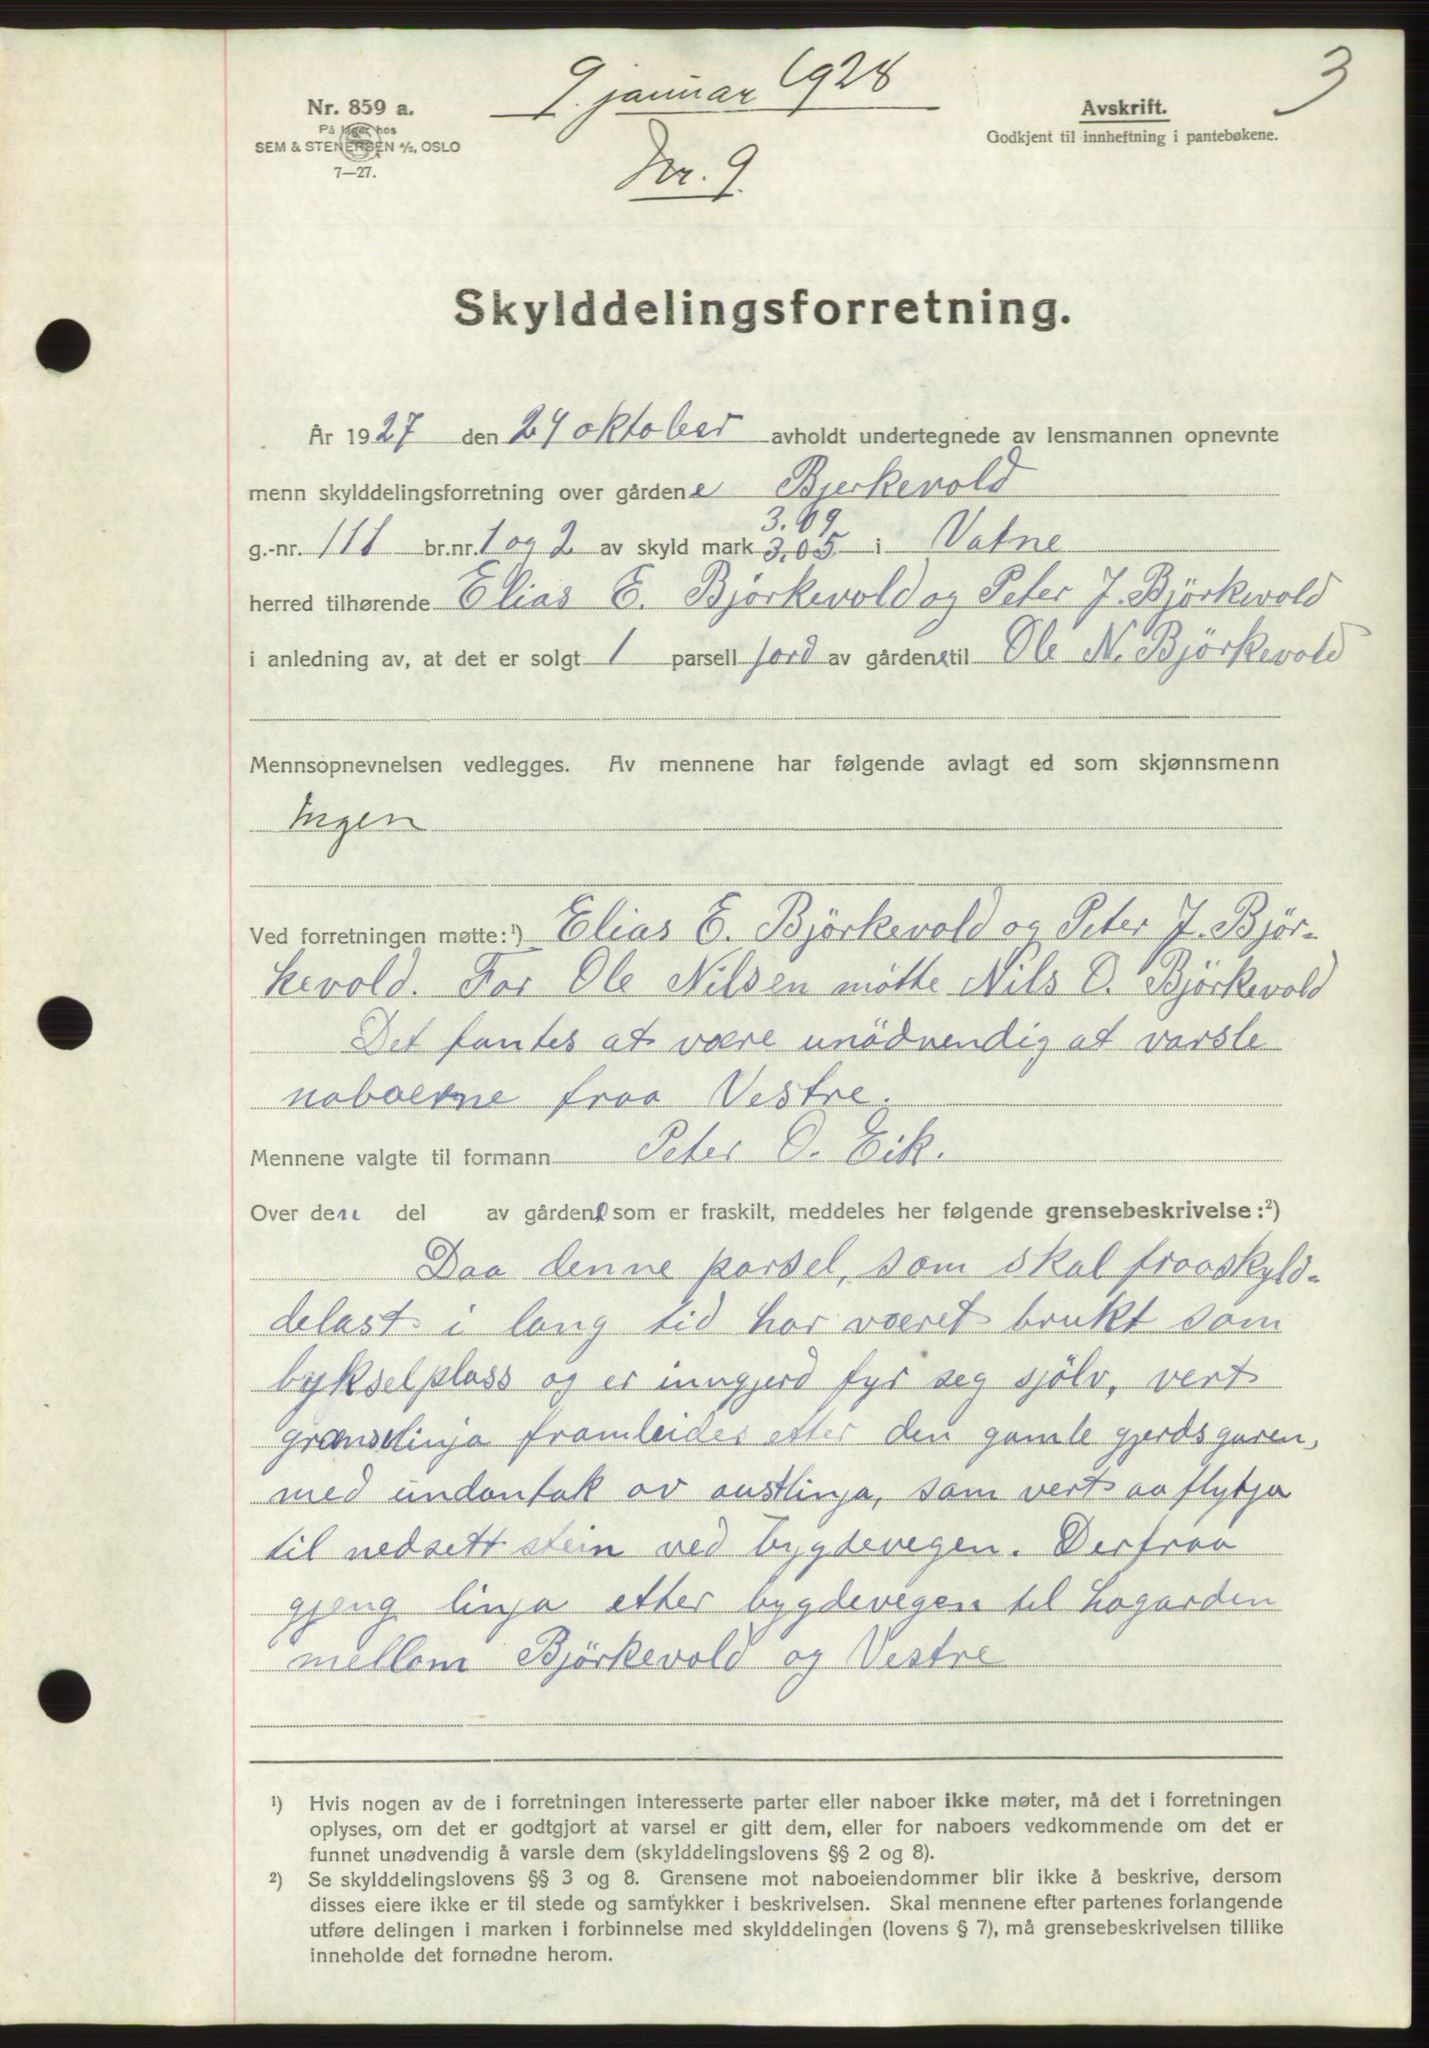 9. januar 1928
3
Nr. 859 a.
På lager hos
SEM & STENERSEN A/S, OSLO
7—27.
Avskrift.
Godkjent til innheftning i pantebøkene.
Nr. 9.
Skylddelingsforretning.
År 1927 den 24 oktober avholdt undertegnede av lensmannen opnevnte
menn skylddelingsforretning over gårdene Bjerkevold
3.09
g.-nr. 111 br.nr. 1 og 2 av skyld mark 3.05 i Vatne
herred tilhørende Elias E. Björkevold og Peter J. Björkevold
i anledning av, at det er solgt 1 parsell jord av gårdene til Ole N. Björkevold
Mennsopnevnelsen vedlegges. Av mennene har følgende avlagt ed som skjønnsmenn
Ingen
Ved forretningen møtte:¹) Elias E. Björkevold og Peter J. Björ-
kevold. For Ole Nilsen mötte Nils O. Björkevold
Det fantes at være unödvendig at varsle
naboerne fraa Vestre.
Mennene valgte til formann Peter O. Eik.
Over den del av gårdene som er fraskilt, meddeles her følgende grensebeskrivelse:²)
Daa denne parsel, som skal fraaskyld-
delast i lang tid har været brukt som
bykselplass og er inngjerd fyr seg sjölv, vert
grænselinja framleides etter den gamle gjerdsgaren,
med undantak av austlinja, som vert aa flytja
til nedsett stein ved bygdevegen. Derfraa
gjeng linja etter bygdevegen til hagarden
mellom Björkevold og Vestre
¹) Hvis nogen av de i forretningen interesserte parter eller naboer ikke møter, må det i forretningen
oplyses, om det er godtgjort at varsel er gitt dem, eller for naboers vedkommende om det er
funnet unødvendig å varsle dem (skylddelingslovens §§ 2 og 8).
²) Se skylddelingslovens §§ 3 og 8. Grensene mot naboeiendommer blir ikke å beskrive, dersom
disses eiere ikke er til stede og samtykker i beskrivelsen. Skal mennene efter partenes forlangende
utføre delingen i marken i forbinnelse med skylddelingen (lovens § 7), må grensebeskrivelsen tillike
inneholde det fornødne herom.